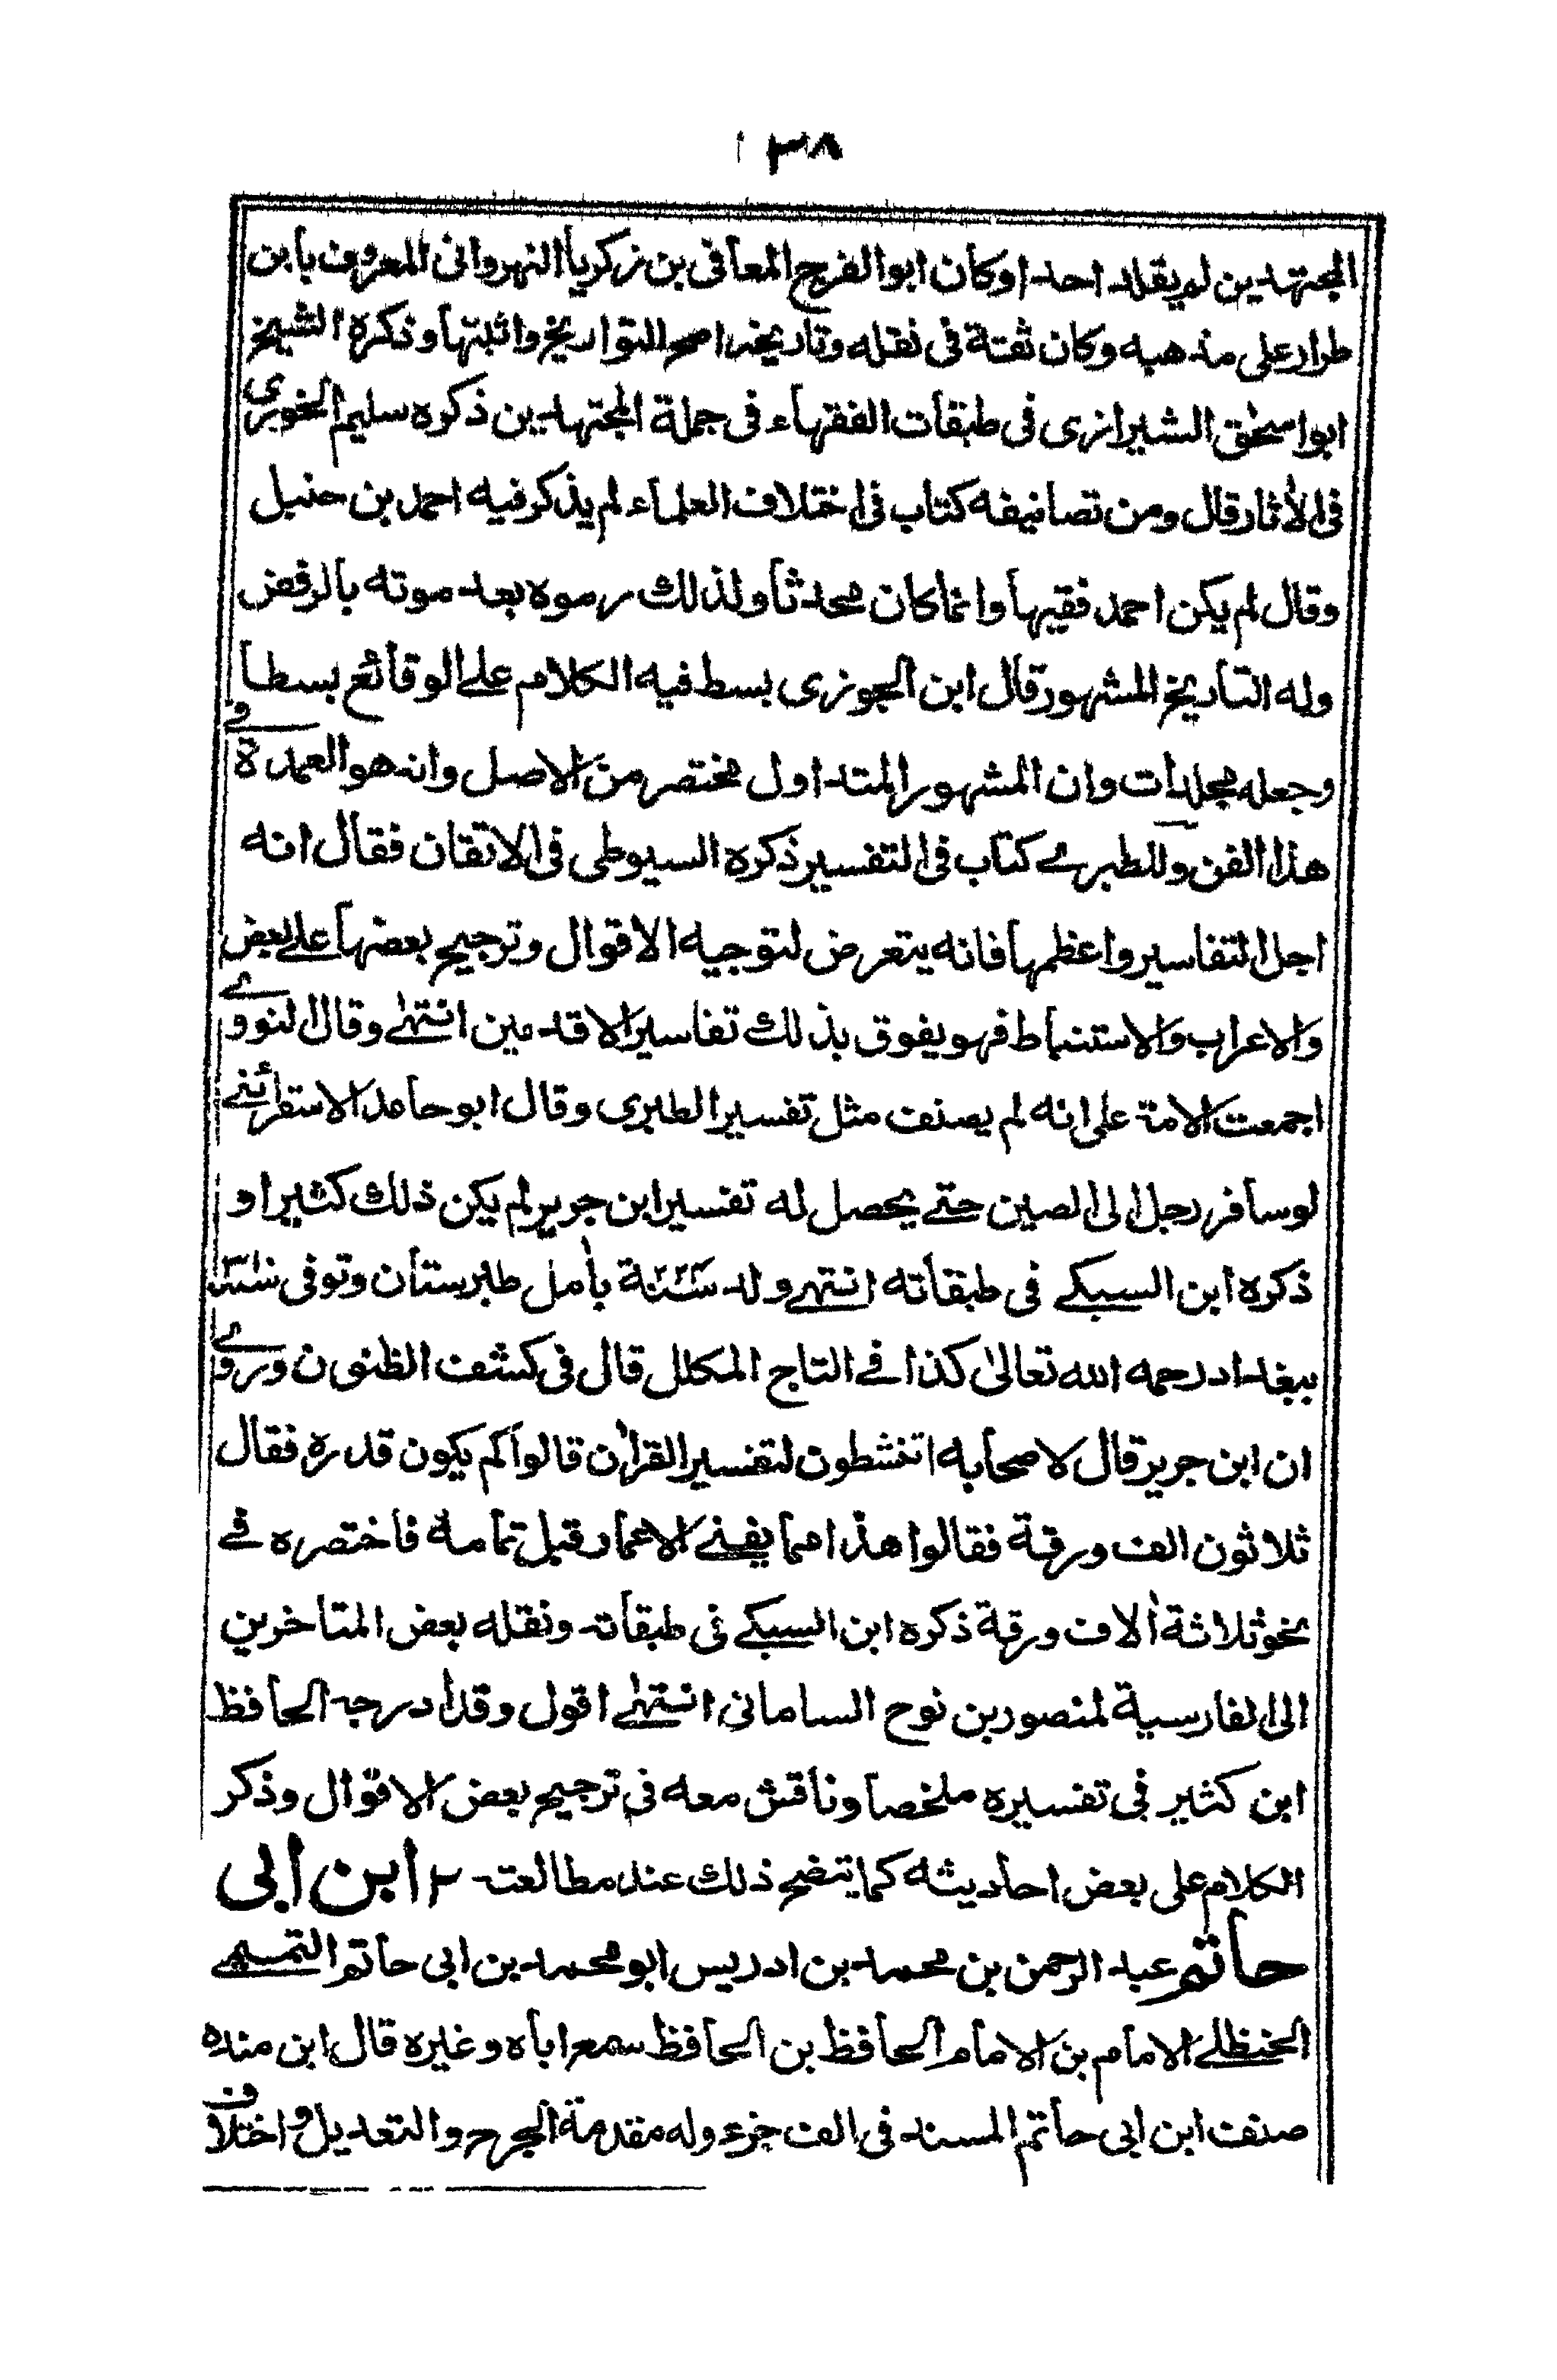 ٣٨
المجتهدين لم يقلد احدا وكان ابو الفرج المعافى بن زكريا النهرواني المعروف بابن
طرار على مذهبه وكان ثقة في نقله وتاريخه اصح التواريخ واثبتها وذكره الشيخ
ابو اسحٰق الشيرازي في طبقات الفقهاء في جملة المجتهدين ذكره سليم الخوري
في الاٰثار قال ومن تصانيفه كتاب في اختلاف العلماء لم يذكر فيه احمد بن حنبل
وقال لم يكن احمد فقيها وانما كان محدثا ولذلك رموه بعد موته بالرفض
وله التاريخ المشهور قال ابن الجوزي بسط فيه الكلام على الوقائع بسطا
وجعله مجلدات وان المشهور المتداول مختصر من الاصل وانه هو العمدة في
هذا الفن وللطبري كتاب في التفسير ذكره السيوطي في الاتقان فقال انه
اجل التفاسير واعظمها فانه يتعرض لتوجيه الاقوال وترجيح بعضها على بعض
والاعراب والاستنباط فهو يفوق بذلك تفاسير الاقدمين انتهٰى وقال النووي
اجمعت الامة على انه لم يصنف مثل تفسير الطبري وقال ابو حامد الاسفرائني
لو سافر رجل الى الصين حتى يحصل له تفسير ابن جرير لم يكن ذلك كثيرا و
ذكره ابن السبكي في طبقاته انتهى ولد سنة بأمل طبرستان وتوفى
ببغداد رحمه الله تعالىٰ كذا في التاج المكلل قال في كشف الظنون وروي
ان ابن جرير قال لاصحابه اتنشطون لتفسير القراٰن قالوا كم يكون قدره فقال
ثلاثون الف ورقة فقالوا هذا مما يفنى الاعمار قبل تمامه فاختصره في
نحو ثلاثة اٰلاف ورقة ذكره ابن السبكي في طبقاته ونقله بعض المتاخرين
الى الفارسية لمنصور بن نوح الساماني انتهٰى اقول وقد ادرجه الحافظ
ابن كثير في تفسيره ملخصا وناقش معه في ترجيح بعض الاقوال وذكر
الكلام على بعض احاديثه كما يتضح ذلك عند مطالعته ٢ ابن ابي
حاتم عبد الرحمن بن محمد بن ادريس ابو محمد بن ابي حاتم التميمي
الحنظلي الامام بن الامام الحافظ بن الحافظ سمع اباه وغيره قال ابن منده
صنف ابن ابي حاتم المسند في الف جزء وله مقدمة الجرح والتعديل واختلاف